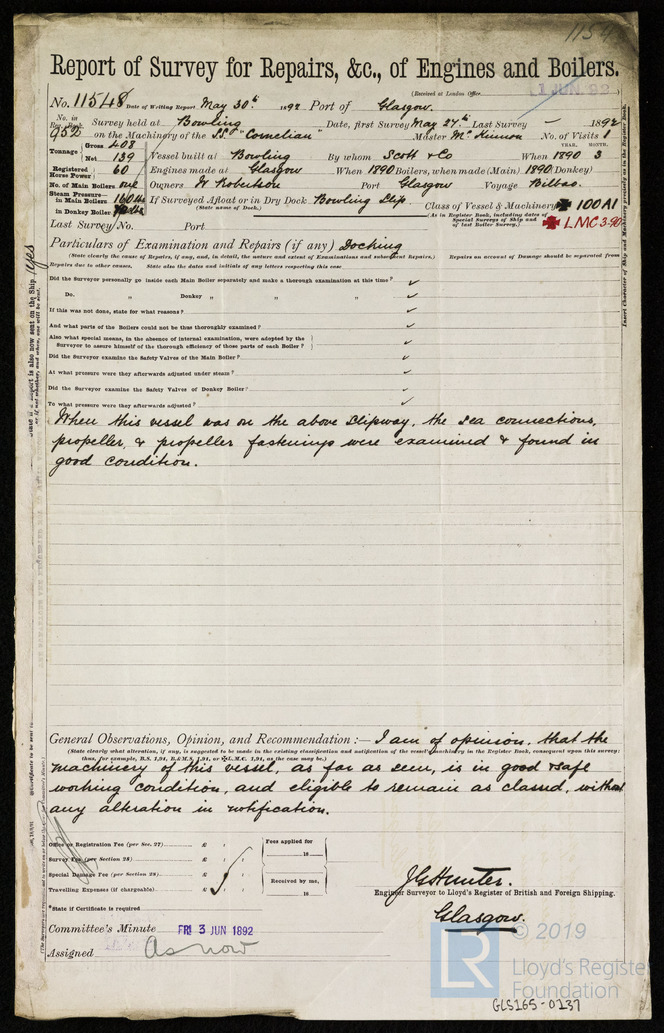 1154
Report of Survey for Repairs, &c., of Engines and Boilers.
(Received at London Office
1 JUN 92
No. 11548 Date of Writing Report May 30th 1892 Port of Glasgow.
No. in Reg. Book. Survey held at Bowling Date, first Survey May 27th Last Survey – 1892
952 on the Machinery of the S.S. "Cornelian" Master McKinnon No. of Visits 1
YEAR. MONTH.
Tonnage Gross 408 Net 139 Vessel built at Bowling By whom Scott & Co When 1890 3
Registered Horse Power 60 Engines made at Glasgow When 1890 Boilers, when made (Main) 1890 (Donkey)
No. of Main Boilers one Owners W Robertson Port Glasgow Voyage Bilbao.
Steam Pressure— in Main Boilers 160 lbs If Surveyed Afloat or in Dry Dock Bowling Slip. Class of Vessel & Machinery ✠ 100A1
in Donkey Boiler (State name of Dock.) (As in Register Book, including dates of Special Surveys of Ship and of last Boiler Survey.) ✠ LMC 3-90
Last Survey No. Port
Particulars of Examination and Repairs (if any) Docking
(State clearly the cause of Repairs, if any, and, in detail, the nature and extent of Examinations and subsequent Repairs.) Repairs on account of Damage should be separated from
Repairs due to other causes. State also the dates and initials of any letters respecting this case
Did the Surveyor personally go inside each Main Boiler separately and make a thorough examination at this time? ✓
Do. „ Donkey „ „ „ ✓
If this was not done, state for what reasons? ✓
And what parts of the Boilers could not be thus thoroughly examined? ✓
Also what special means, in the absence of internal examination, were adopted by the
Surveyor to assure himself of the thorough efficiency of those parts of each Boiler? ✓
Did the Surveyor examine the Safety Valves of the Main Boiler? ✓
At what pressure were they afterwards adjusted under steam? ✓
Did the Surveyor examine the Safety Valves of Donkey Boiler? ✓
To what pressure were they afterwards adjusted? ✓
When this vessel was on the above slipway, the sea connections,
propeller, & propeller fastenings were examined & found in
good condition.
General Observations, Opinion, and Recommendation :— I am of opinion, that the
(State clearly what alteration, if any, is suggested to be made in the existing classification and notification of the vessel's machinery in the Register Book, consequent upon this survey;
thus, for example, B.S. 1,94, B.&M.S. 1,94, or ✠L.M.C. 1,94, as the case may be.)
machinery of this vessel, as far as seen, is in good & safe
working condition, and eligible to remain as classed, without
any alteration in notification.
Office or Registration Fee (per Sec. 27) £ : :
Survey Fee (per Section 28) £ : :
Special Damage Fee (per Section 28) £ : :
Travelling Expenses (if chargeable) £ : :
Fees applied for
18
Received by me,
18
J G Hunter.
Engineer Surveyor to Lloyd's Register of British and Foreign Shipping.
*State if Certificate is required
Glasgow.
Committee's Minute FRI 3 JUN 1892
Assigned As now
Insert Character of Ship and Machinery precisely as in the Register Book.
Yes
LR
© 2019
Lloyd's Register
Foundation
GLS165-0137